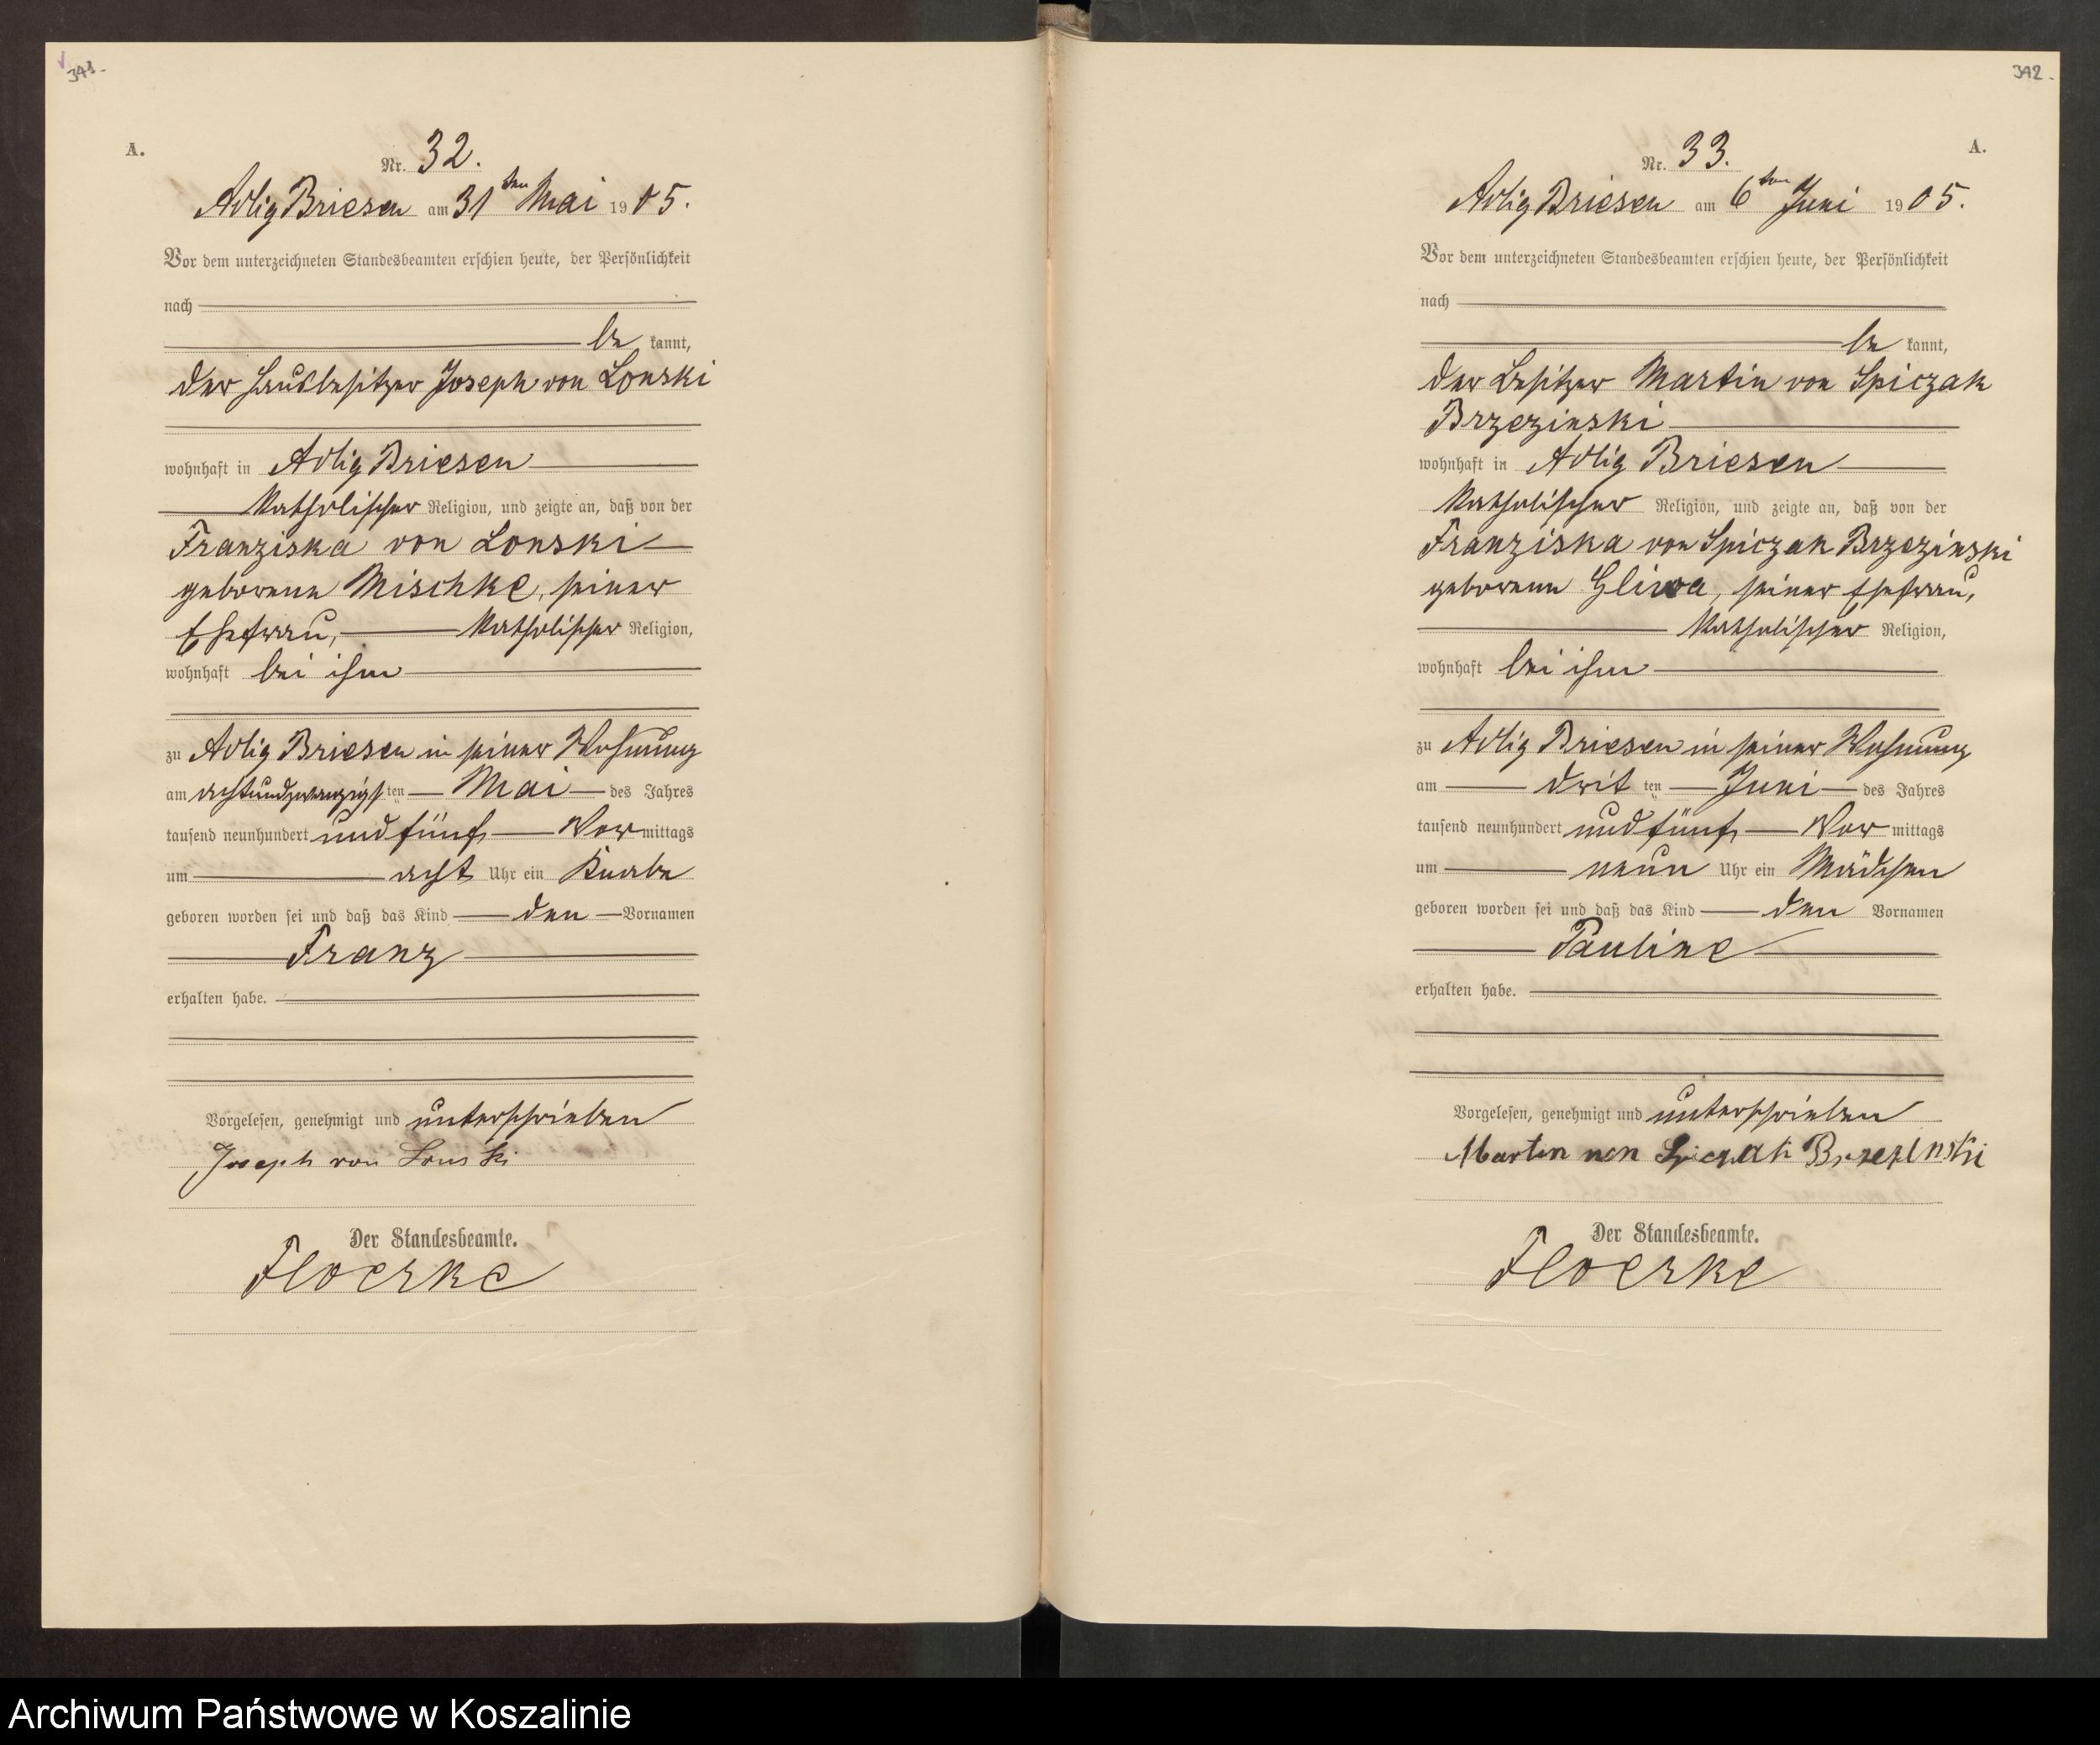 341.
A.
Nr. 32.
Adlig Briesen am 31ten Mai 1905.
Vor dem unterzeichneten Standesbeamten erschien heute, der Persönlichkeit
nach
be kannt,
der Hausbesitzer Joseph von Lonski
wohnhaft in Adlig Briesen
katholischer Religion, und zeigte an, daß von der
Franziska von Lonski
geborene Mischke, seiner
Ehefrau, katholischer Religion,
wohnhaft bei ihm
zu Adlig Briesen in seiner Wohnung
am achtundzwanzigsten Mai des Jahres
tausend neunhundert und fünf Vormittags
um acht Uhr ein Knabe
geboren worden sei und daß das Kind den Vornamen
Franz
erhalten habe.
Vorgelesen, genehmigt und unterschrieben
Joseph von Lonski
Der Standesbeamte.
Floerke
342.
A.
Nr. 33.
Adlig Briesen am 6ten Juni 1905.
Vor dem unterzeichneten Standesbeamten erschien heute, der Persönlichkeit
nach
be kannt,
der Besitzer Martin von Spiczak
Brzezinski
wohnhaft in Adlig Briesen
katholischer Religion, und zeigte an, daß von der
Franziska von Spiczak Brzezinski
geborene Gliwa, seiner Ehefrau,
katholischer Religion,
wohnhaft bei ihm
zu Adlig Briesen in seiner Wohnung
am dritten Juni des Jahres
tausend neunhundert und fünf Vormittags
um neun Uhr ein Mädchen
geboren worden sei und daß das Kind den Vornamen
Pauline
erhalten habe.
Vorgelesen, genehmigt und unterschrieben
Martin von Spiczak Brzezinski
Der Standesbeamte.
Floerke
Archiwum Państwowe w Koszalinie